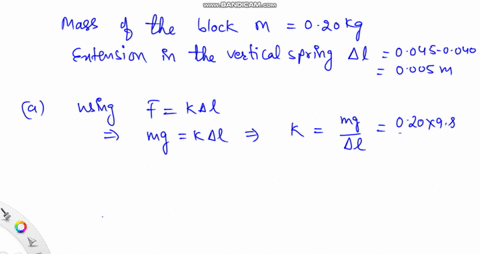 WWW.BANDICAM.COM
Mass of the block m = 0.20 kg
Extension in the vertical spring Δl = 0.045-0.040
= 0.005 m
(a) using F = KΔl
⇒ mg = KΔl ⇒ K = mg/Δl = 0.20×9.8